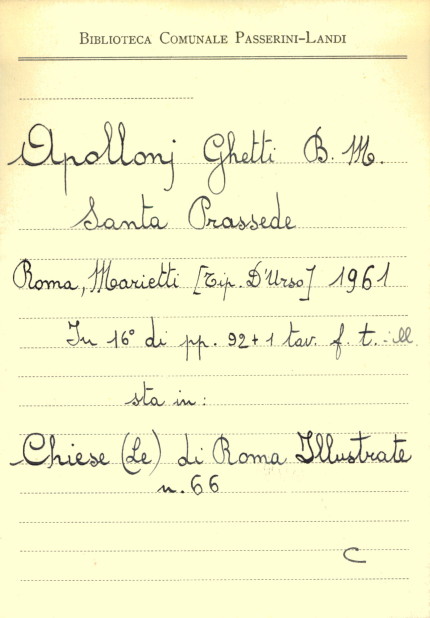 BIBLIOTECA COMUNALE PASSERINI-LANDI
Apollonj Ghetti B. M.
Santa Prassede
Roma, Marietti [Tip. D'Urso] 1961
In 16° di pp. 92+1 tav. f. t. - ill
sta in:
Chiese (Le) di Roma Illustrate
n. 66
C